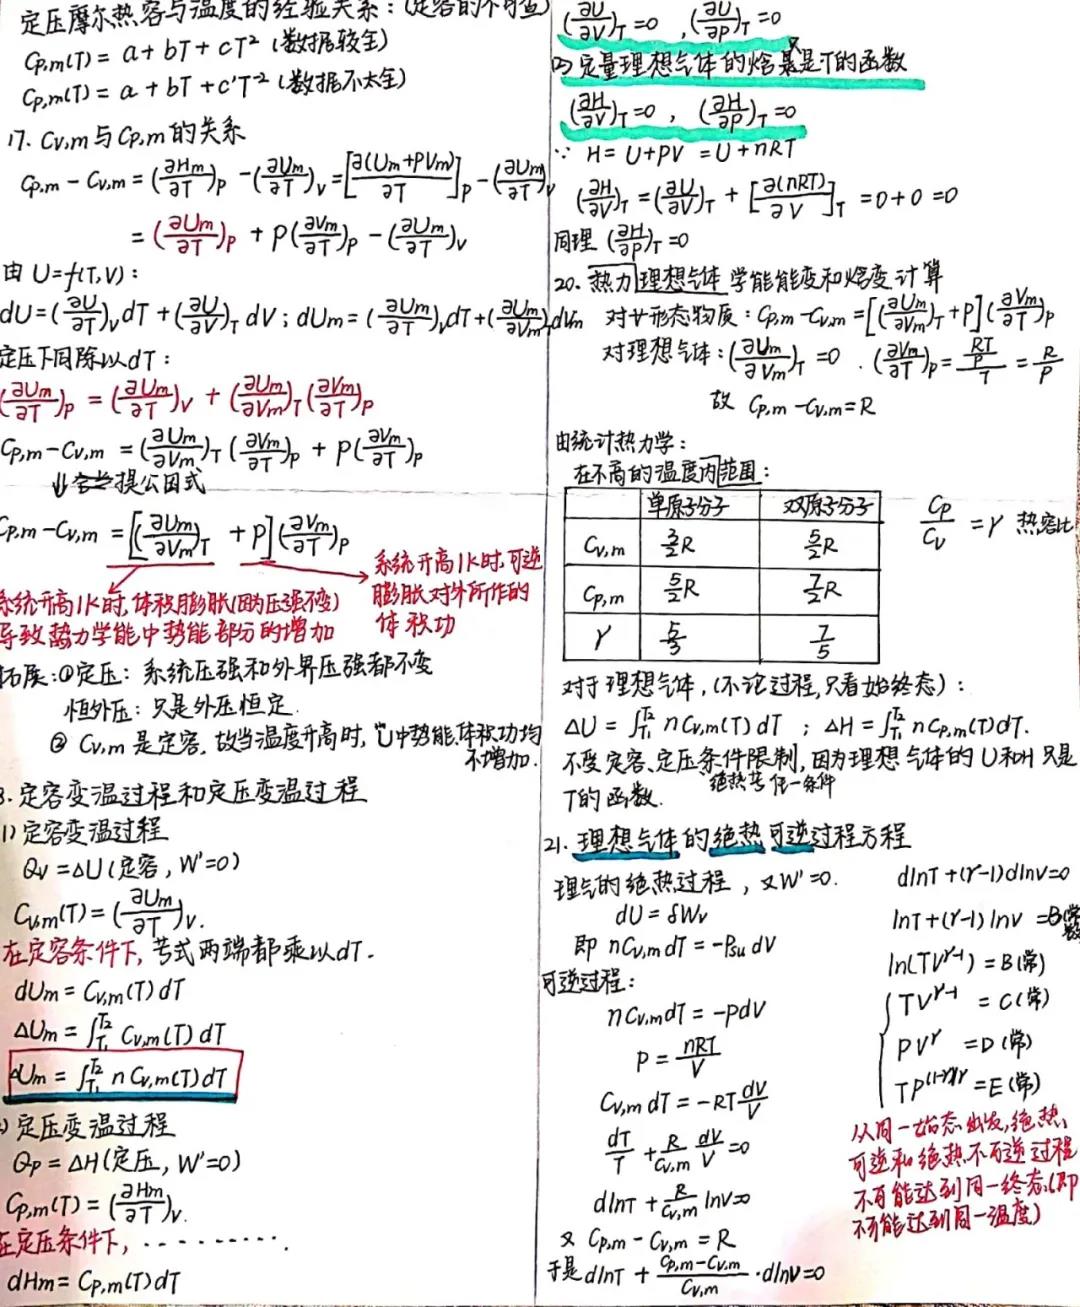 定压摩尔热容与温度的经验关系：(定容的不可查)
Cp,m(T) = a + bT + cT² (数据较全)
Cp,m(T) = a + bT + c'T⁻² (数据不太全)
17. Cv,m与Cp,m的关系
Cp,m - Cv,m = (∂Hm/∂T)p - (∂Um/∂T)v = [∂(Um+PVm)/∂T]p - (∂Um/∂T)v
= (∂Um/∂T)p + P(∂Vm/∂T)p - (∂Um/∂T)v
由 U=f(T,V)：
dU = (∂U/∂T)v dT + (∂U/∂V)T dV ; dUm = (∂Um/∂T)v dT + (∂Um/∂Vm)T dVm
定压下同除以dT：
(∂Um/∂T)p = (∂Um/∂T)v + (∂Um/∂Vm)T (∂Vm/∂T)p
Cp,m - Cv,m = (∂Um/∂Vm)T (∂Vm/∂T)p + P(∂Vm/∂T)p
↓ 提公因式
Cp,m - Cv,m = [(∂Um/∂Vm)T + P](∂Vm/∂T)p
系统升高1K时,可逆
膨胀对外所作的
体积功
系统升高1K时,体积膨胀(因为压强不变)
导致热力学能中势能部分的增加
拓展：①定压：系统压强和外界压强都不变
恒外压：只是外压恒定.
② Cv,m 是定容，故当温度升高时，U中势能、体积功均
不增加.
8. 定容变温过程和定压变温过程
1) 定容变温过程
Qv = ΔU (定容, W'=0)
Cv,m(T) = (∂Um/∂T)v.
在定容条件下, 等式两端都乘以dT.
dUm = Cv,m(T) dT
ΔUm = ∫T₁T₂ Cv,m(T) dT
ΔUm = ∫T₁T₂ n Cv,m(T) dT
) 定压变温过程
Qp = ΔH (定压, W'=0)
Cp,m(T) = (∂Hm/∂T)v.
在定压条件下, ··········.
dHm = Cp,m(T) dT
(∂U/∂V)T = 0 , (∂U/∂P)T = 0
(2) 定量理想气体的焓是T的函数
(∂H/∂V)T = 0 , (∂H/∂P)T = 0
∵ H = U + PV = U + nRT
(∂H/∂V)T = (∂U/∂V)T + [∂(nRT)/∂V]T = 0 + 0 = 0
同理 (∂H/∂P)T = 0
20. 热力理想气体 学能能变和焓变计算
对廿形态物质：Cp,m - Cv,m = [(∂Um/∂Vm)T + P](∂Vm/∂T)p
对理想气体：(∂Um/∂Vm)T = 0 . (∂Vm/∂T)p = RT/P/T = R/P
故 Cp,m - Cv,m = R
由统计热力学：
在不高的温度内范围：
单原子分子 双原子分子
Cv,m 3/2R 5/2R
Cp,m 5/2R 7/2R
γ 5/3 7/5
Cp/Cv = γ 热容比
对于理想气体, (不论过程,只看始终态)：
ΔU = ∫T₁T₂ n Cv,m(T) dT ; ΔH = ∫T₁T₂ n Cp,m(T) dT.
不受定容、定压条件限制, 因为理想气体的U和H只是
绝热等任一条件
T的函数.
21. 理想气体的绝热可逆过程方程
理气的绝热过程, 又W'=0.
dU = δWv
即 n Cv,m dT = -Psu dV
可逆过程：
n Cv,m dT = -PdV
P = nRT/V
Cv,m dT = -RT dV/V
dT/T + R/Cv,m dV/V = 0
dlnT + R/Cv,m lnV = 0
又 Cp,m - Cv,m = R
于是 dlnT + Cp,m-Cv,m/Cv,m · dlnV = 0
dlnT + (γ-1)dlnV = 0
lnT + (γ-1)lnV = B(常数)
ln(TV^γ-1) = B(常)
TV^γ-1 = C(常)
PV^γ = D(常)
TP^(1-γ)/γ = E(常)
从同一始态出发,绝热
可逆和绝热不可逆过程
不可能达到同一终态(即
不可能达到同一温度)